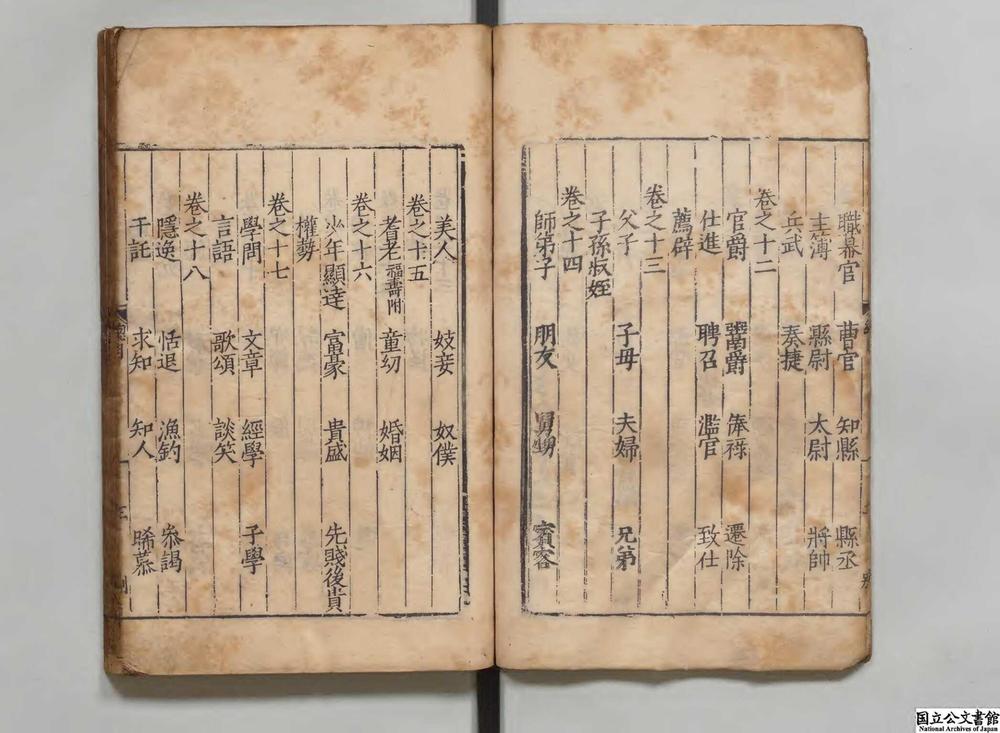 職幕官 曹官 知縣 縣丞
主簿 縣尉 太尉 將帥
兵武 奏捷
卷之十二
官爵 鬻爵 俸祿 遷除
仕進 聘召 濫官 致仕
薦辟
卷之十三
父子 子母 夫婦 兄弟
子孫叔姪
卷之十四
師弟子 朋友 舅甥 賓客
美人 妓妾 奴僕
卷之十五
耆老福壽附 童幼 婚姻
卷之十六
少年顯達 富豪 貴盛 先賤後貴
權勢
卷之十七
學問 文章 經學 子學
言語 歌頌 談笑
卷之十八
隱逸 恬退 漁釣 叅謁
干託 求知 知人 晞慕
国立公文書館
National Archives of Japan